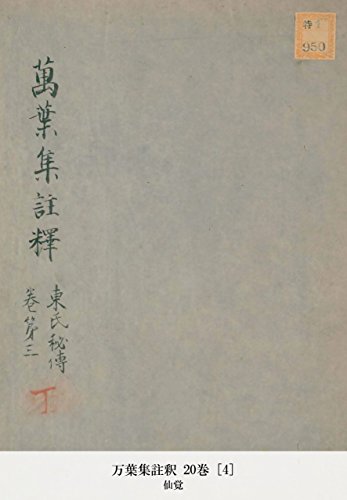 950
萬葉集註釋
東氏秘傳
卷第三
丁
万葉集註釈 20巻 [4]
仙覚